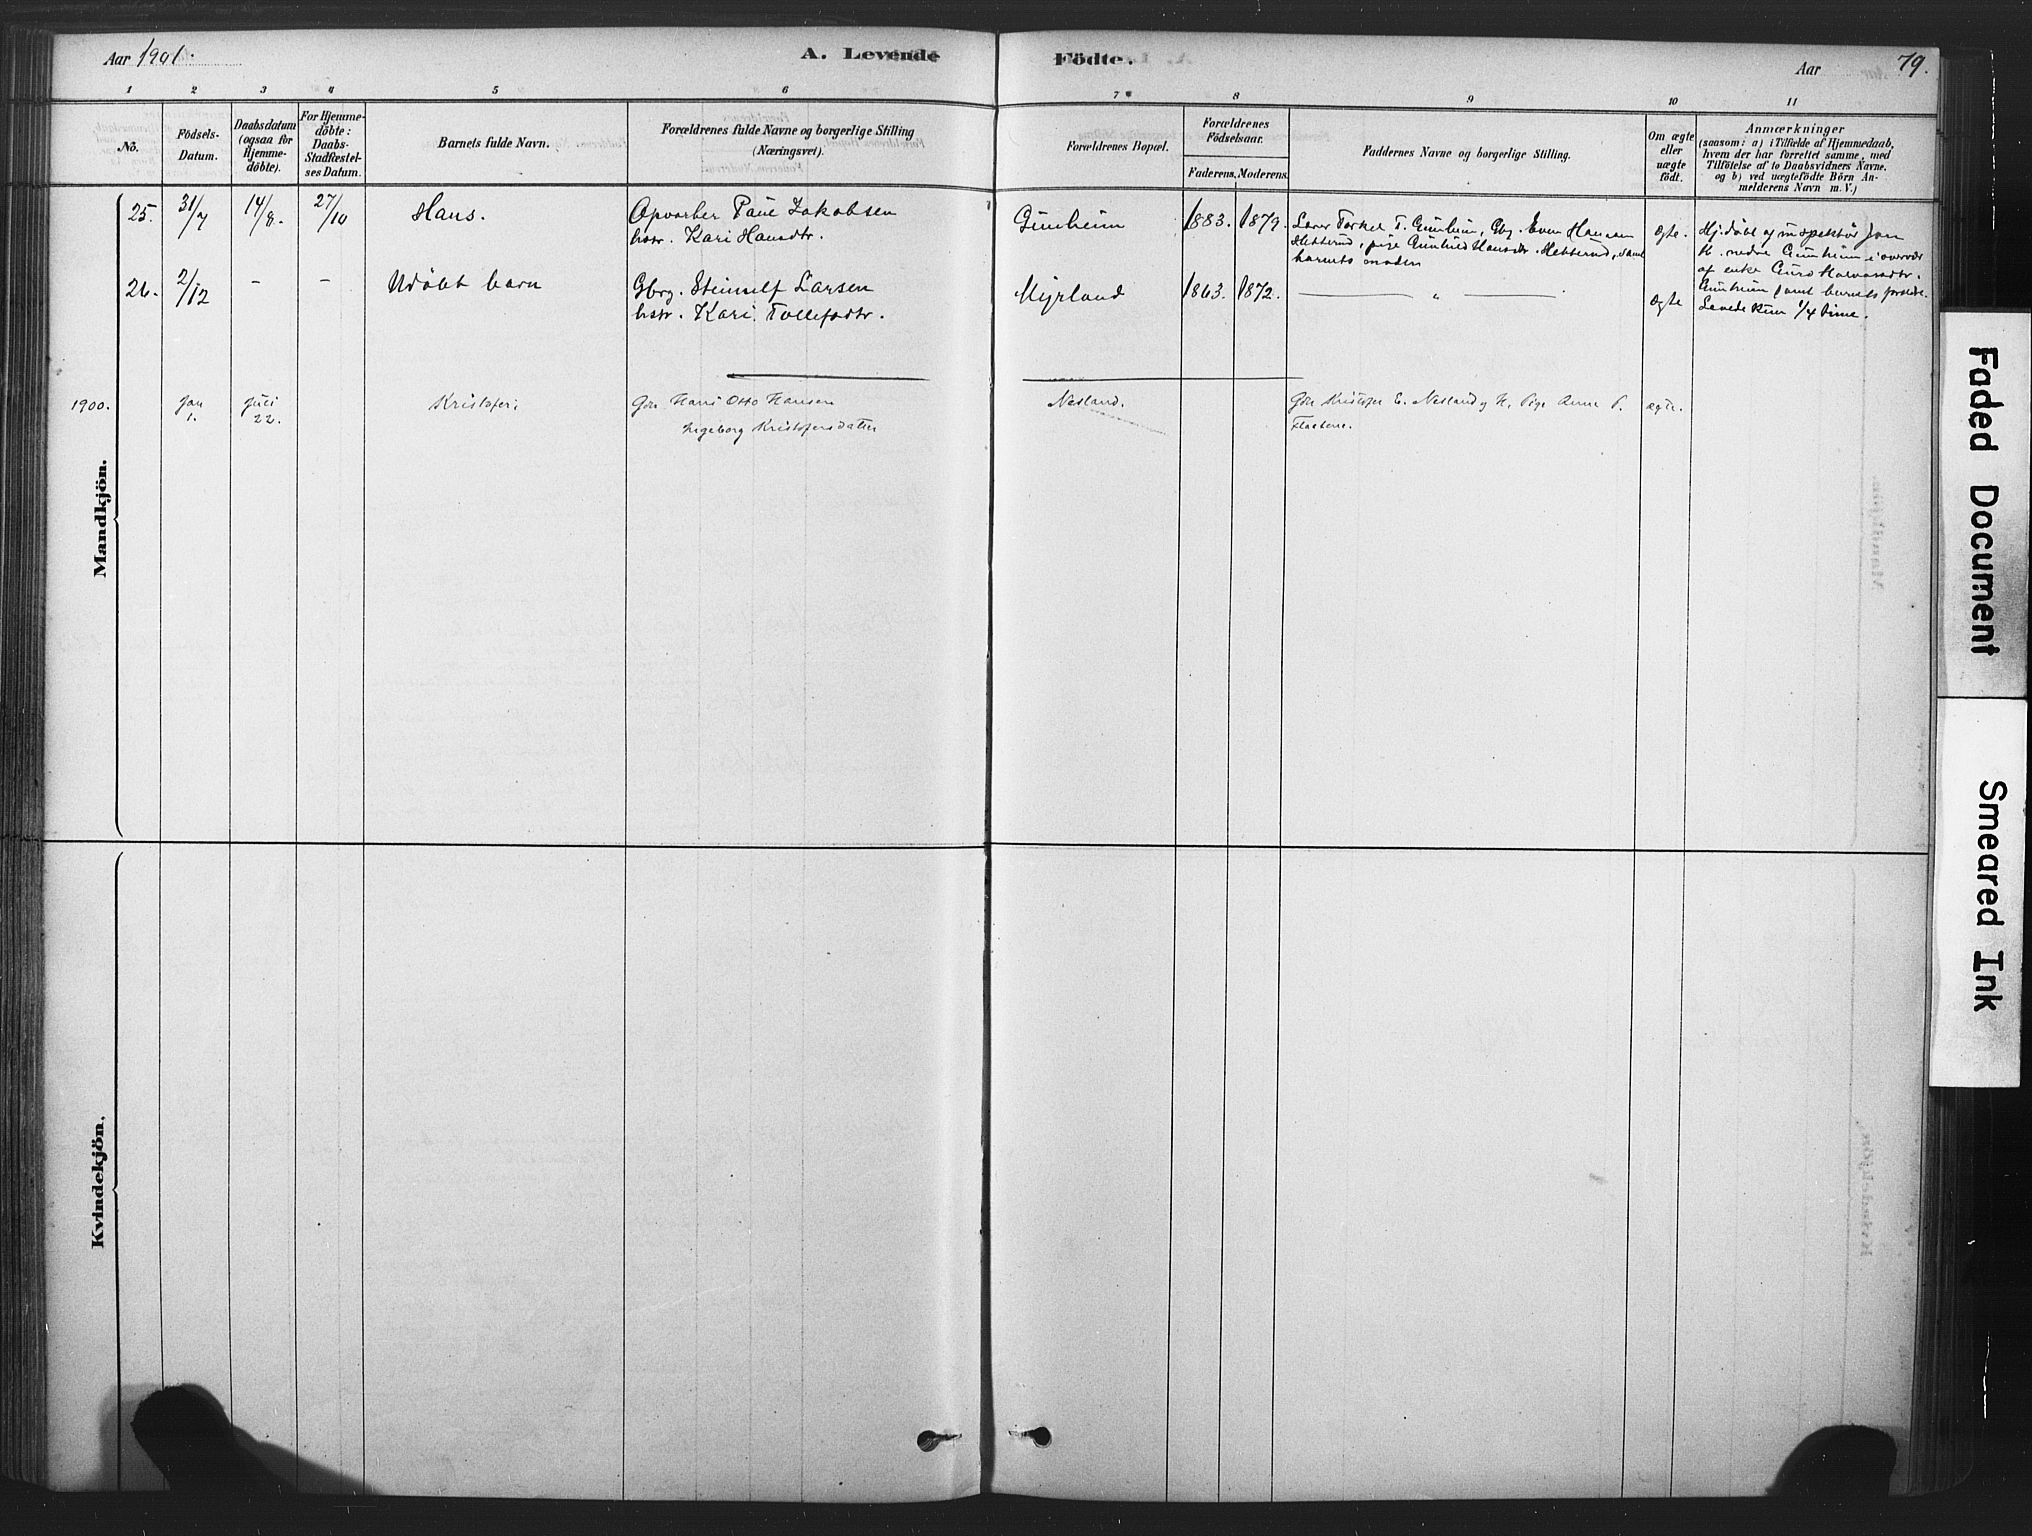 Aar 1901.
A. Levende
Födte.
Aar
79.
1 2 3 4 5 6 7 8 9 10 11
No.
Födsels-
Datum.
Daabsdatum
(ogsaa for
Hjemme-
döbte).
For Hjemme-
döbte:
Daabs-
Stadfæstel-
ses Datum.
Barnets fulde Navn.
Forældrenes fulde Navne og borgerlige Stilling
(Næringsvei).
Forældrenes Bopæl.
Forældrenes
Födselsaar.
Faderens. Moderens.
Faddernes Navne og borgerlige Stilling.
Om ægte
eller
uægte
födt.
Anmærkninger
(saasom: a) i Tilfælde af Hjemmedaab,
hvem der har forrettet samme, med
Tilföielse af to Daabsvidners Navne,
og b) ved uægtefödte Börn An-
melderens Navn m. V.)
Mandkjön.
25. 31/7 14/8. 27/10 Hans.
Opvarter Paul Jakobsen
hstr. Kari Hansdtr.
Gunheim 1883. 1879.
Lærer Torkel T. Gunheim, Gbg. Even Hansen
Hetterud, pige Gunhild Hansdtr. Hetterud, samt
barnets moder
ægte.
Hj. døbt af inspektør Jon
H. nedre Gunheim i overvær
af enke Guro Halvorsdtr.
Gunheim samt barnets forældre.
26. 2/12 - - Udøbt barn
Gbrg. Steinulf Larsen
hstr. Kari Tollefsdtr.
Myrland 1863. 1872. — " — ægte
Levede kun 1/4 time.
1900. Jan
1. Juli
22. Kristofer
Gbr Hans Otto Hansen
Ingeborg Kristofersdatter
Nesland.
Gbr Kristofer E. Nesland og H, Pige Anne P.
ægte.
Kvindekjön.
Faded Document
Smeared Ink